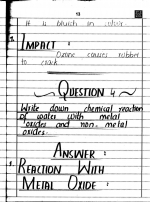 It is bluish in colour.
IMPACT :
Ozone causes rubber
to crack
QUESTION 4
Write down chemical reaction
of water with metal
oxides and non-metal
oxides.
ANSWER :
REACTION WITH
METAL OXIDE :